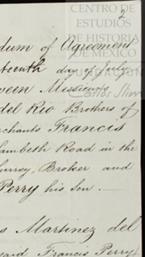 CENTRO DE
ESTUDIOS
DE HISTORIA
DE MEXICO
2
dum of Agreement
teenth day of July
ween Messieurs
del Rio Brothers of
chants Francis
ambeth Road in the
urrey Broker and
Perry his Son
s Martinez del
said Francis Perry